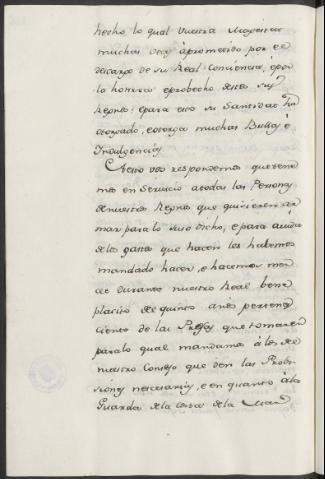 hecho lo qual Vuestra Magestad
muchas veces à prometido por el
descargo de su Real Conciencia, è por
la honrra è probecho destos sus
Reynos: è para esto su Santidad ha
otorgado, è otorga muchas Bullas è
Indulgencias
A esto vos respondemos que tene
mos en Servicio a todas las Personas
de nuestros Reynos que quisieren ar
mar para lo suso dicho, è para ayuda
de los gastos que hacen les habemos
mandado hacer, e hacemos mer
ced durante nuestro Real bene
placito del quinto anos pertene
ciente de las Presas que tomaren
para lo qual mandamos à los de
nuestro Consejo que den las Probi
siones necesarias, e en quanto à la
Guarda de la costa de la Mar